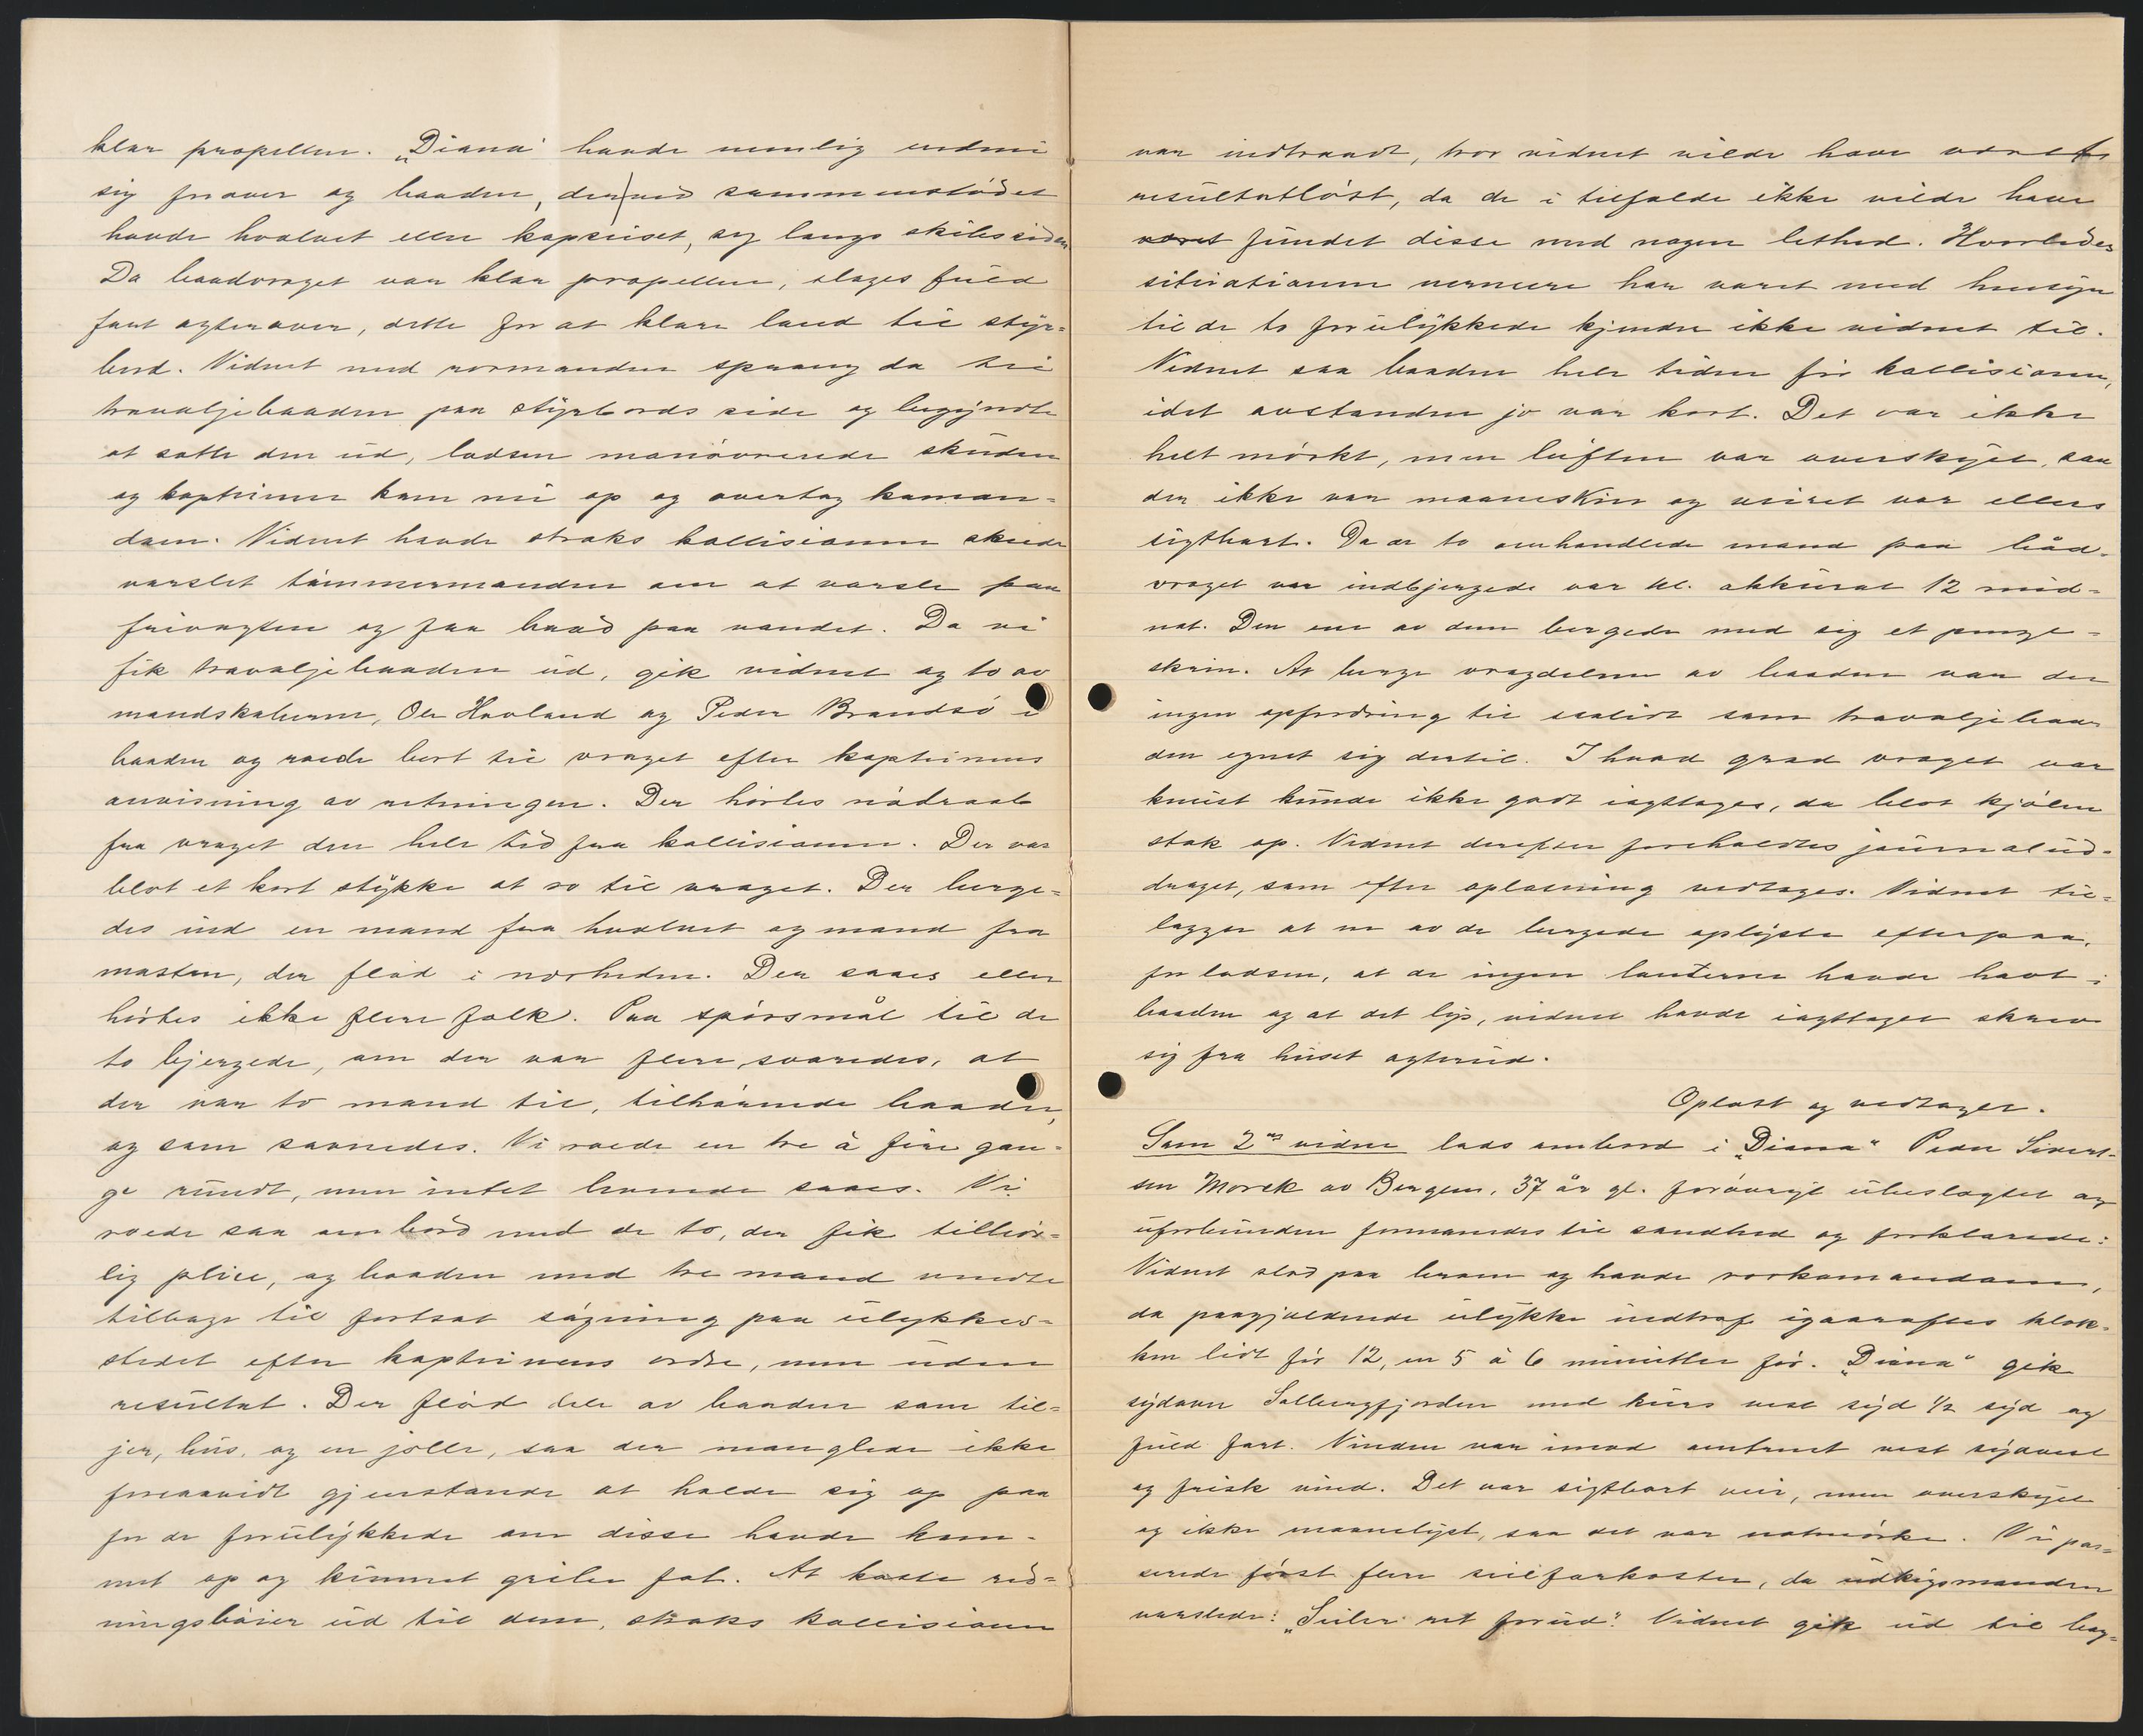 klar propellen. „Diana" havde nemlig endnu
sig forover og baaden, der ved sammenstödet
havde hvalvet eller kapseiset, seg langs skibssiden.
Da baadvraget var klar propellen, sloges fuld
fart agterover, dette for at klare land til styr-
bord. Vidnet med rormanden sprang da til
travaljebaaden paa styrbords side og begyndte
at sætte den ud, lodsen manövrerede skuden
og kapteinen kom nu op og overtog komman-
doen. Vidnet havde straks kollisionen skede
varslet tömmermanden om at varsle paa
frivagten og faa baad paa vandet. Da vi
fik travaljebaaden ud, gik vidnet og to av
mandskaberne, Ole Havland og Peder Brandsö i
baaden og roede bort til vraget efter kapteinens
anvisning av retningen. Der hörtes nödraab
fra vraget den hele tid fra kollisionen. Der var
blot et kort stykke at ro til vraget. Der berge-
des ind en mand fra hvalvet og mand fra
masten, der flöd i nærheden. Der saaes eller
hörtes ikke flere folk. Paa spörsmål til de
to bjergede, om der var flere, svaredes, at
der var to mand til, tilhörende baaden,
og som savnedes. Vi roede en tre à fire gan-
ge rundt, men intet levende saaes. Vi
roede saa ombord med de to, der fik tilbör-
lig pleie, og baaden med tre mand vendte
tilbage til fortsat sögning paa ulykkes-
stedet efter kapteinens ordre, men uden
resultat. Der flöd dele av baaden som til-
jer, hus, og en jolle, saa der manglede ikke
forsaavidt gjenstande at holde sig op paa
for de forulykkede om disse havde kom-
met op og kunnet gribe fat. At kaste red-
ningsböier ud til dem, straks kollisionen
var indtraadt, tror vidnet vilde have været
resultatlöst, da de i tilfælde ikke vilde have
været fundet disse med nogen lethed. Hvorledes
situationen nærmere har været med hensyn
til de to forulykkede kjender ikke vidnet til.
Vidnet saa baaden hele tiden för kollisionen,
idet avstanden jo var kort. Det var ikke
helt mörkt, men luften var overskyet, saa
der ikke var maaneskin og veiret var ellers
sigtbart. Da de to omhandlede mand paa båd-
vraget var indbjergede var kl. akkurat 12 mid-
nat. Den ene av dem bergede med sig et penge-
skrin. At berge vragdelene av baaden var der
ingen opfordring til ei heller som travaljebaa-
den egnet sig dertil. I hvad grad vraget var
knust kunde ikke godt iagttages, da blot kjölen
stak op. Vidnet derefter foreholdtes journalud-
draget, som efter oplæsning vedtages. Vidnet til-
lægger at en av de bergede oplyste efterpaa,
for lodsen, at de ingen lanterne havde havt i
baaden og at det lys, vidnet havde iagttaget skrev
sig fra huset agterud.
Oplæst og vedtaget.
Som 2det vidne lods ombord i „Diana" Peder Sivert-
sen Morek av Bergen, 37 år gl. forövrigt ubeslægtet og
uforbunden formanedes til sandhed og forklarede:
Vidnet stod paa broen og havde rorkommandoen,
da paagjældende ulykke indtraf igaaraftes klok-
ken lidt för 12, en 5 à 6 minutter för. „Diana" gik
sydover Solbergfjorden med kurs vest syd ½ syd og
fuld fart. Vinden var imod omtrent vest sydvest
og frisk vind. Det var sigtbart veir, men overskyet
og ikke maanelyst, saa det var natmörke. Vi pas-
serede först flere seilfarkoster, da udkigsmanden
varslede: „Seiler ret forud". Vidnet gik ud til bag-